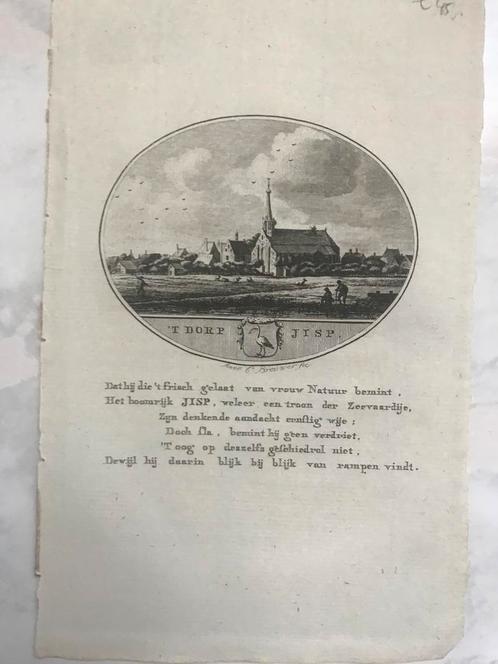 € 45,-
'T DORP JISP.
Anna C. Brouwer, fc.
Dat hij die 't frisch gelaat van vrouw Natuur bemint,
Het boomrijk JISP, weleer een troon der Zeevaardije,
Zijn denkende aandacht ernstig wije;
Doch sla, bemint hij geen verdriet,
'T oog op deszelfs geschiedrol niet,
Dewijl hij daarin blijk bij blijk van rampen vindt.